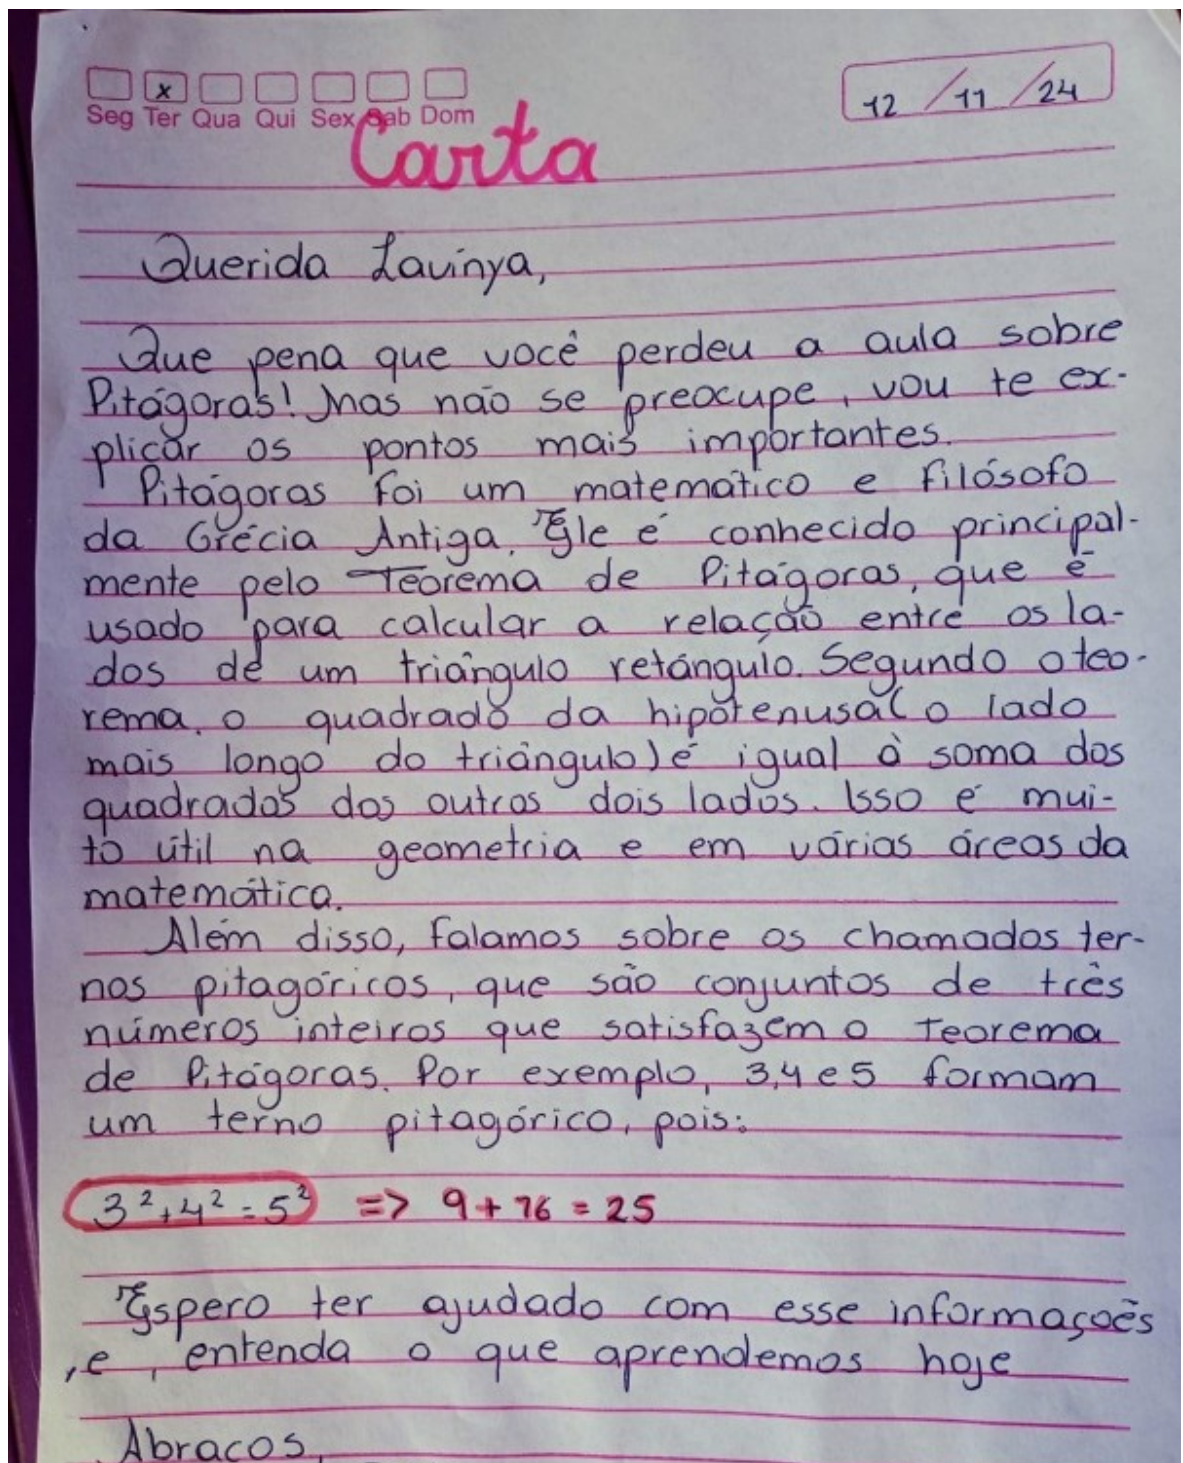 x
12 / 11 / 24
Seg Ter Qua Qui Sex Sab Dom
Carta
Querida Lavinya,
Que pena que você perdeu a aula sobre
Pitágoras! Mas não se preocupe, vou te ex-
plicar os pontos mais importantes.
Pitágoras foi um matemático e filósofo
da Grécia Antiga. Ele é conhecido principal-
mente pelo Teorema de Pitágoras, que é
usado para calcular a relação entre os la-
dos de um triângulo retângulo. Segundo o teo-
rema, o quadrado da hipotenusa (o lado
mais longo do triângulo) é igual à soma dos
quadrados dos outros dois lados. Isso é mui-
to útil na geometria e em várias áreas da
matemática.
Além disso, falamos sobre os chamados ter-
nos pitagóricos, que são conjuntos de três
números inteiros que satisfazem o Teorema
de Pitágoras. Por exemplo, 3,4 e 5 formam
um terno pitagórico, pois:
3² + 4² = 5² => 9 + 16 = 25
Espero ter ajudado com esse informações
, e , entenda o que aprendemos hoje
Abraços,